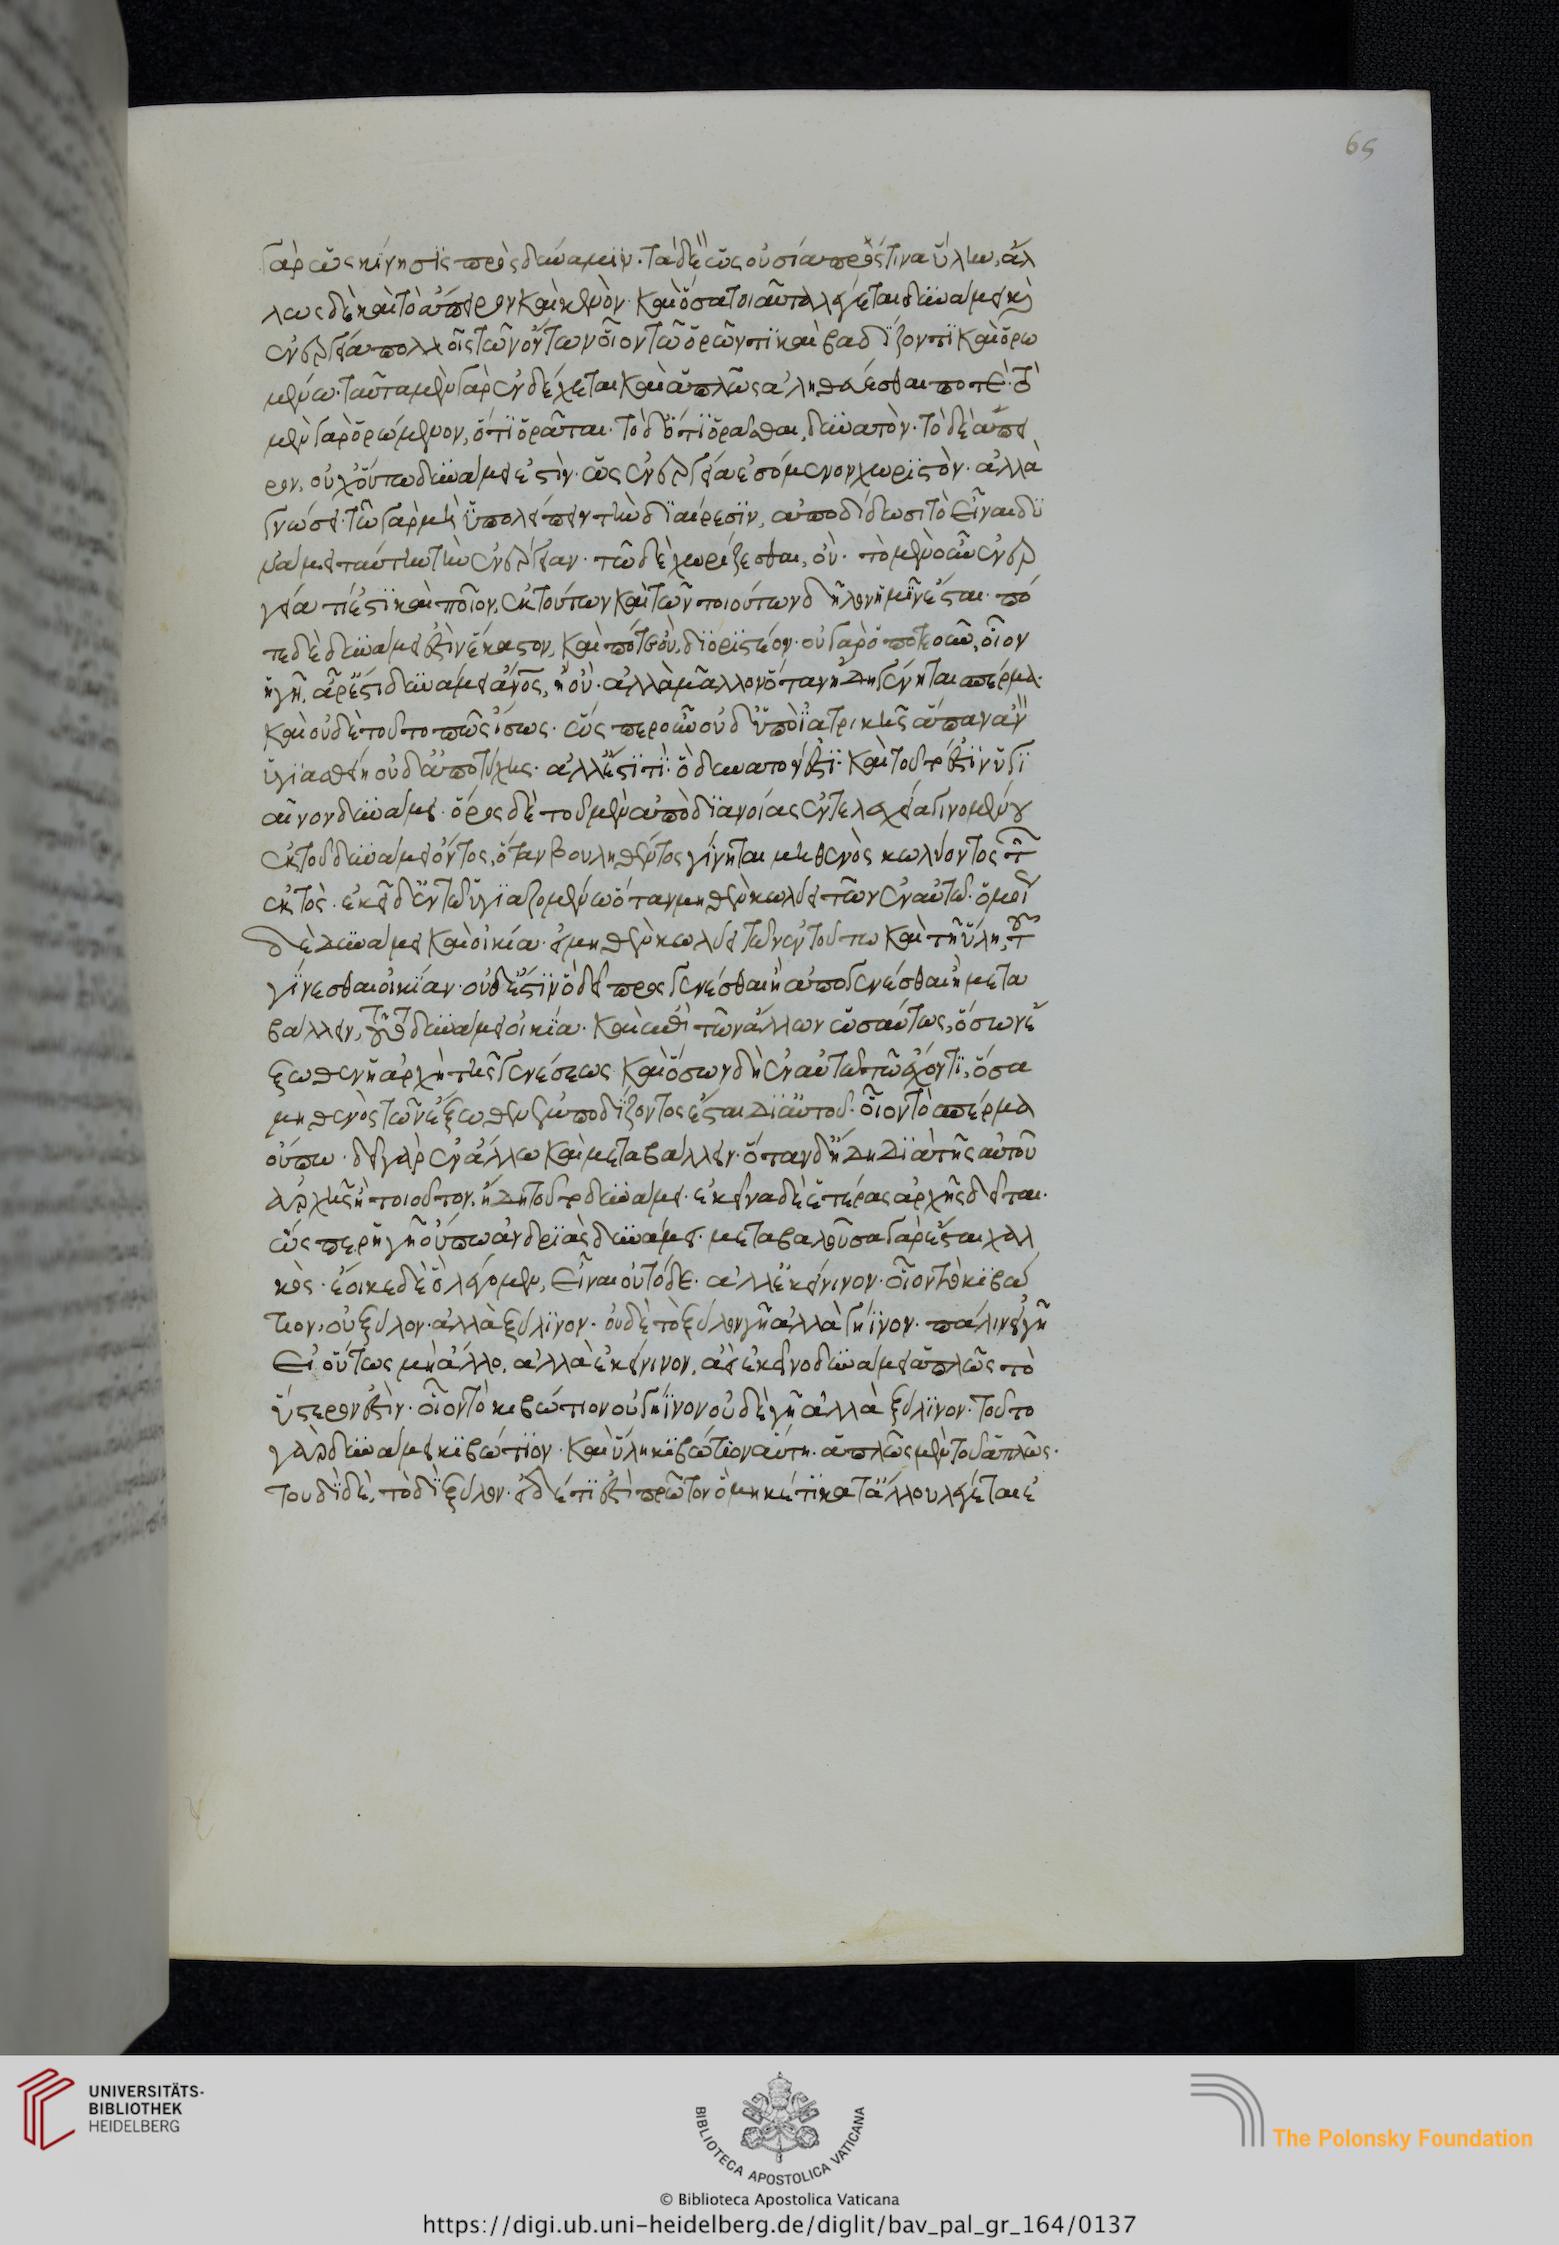 γὰρ ὡς κίνησις πρὸς δύναμιν· τὰ δὲ ὡς οὐσία πρός τινα ὕλην, ἄλ
λως δὲ καὶ τὸ ἄπειρον καὶ κενὸν· καὶ ὅσα τοιαῦτα λέγεται δυνάμει καὶ
ἐνεργεία πολλοῖς τῶν ὄντων οἷον τῶ ὁρῶντι καὶ βαδίζοντι καὶ ὁρω
μένω· ταῦτα μὲν γὰρ ἐνδέχεται καὶ ἁπλῶς ἀληθεύεσθαι ποτέ· τὸ
μὲν γὰρ ὁρώμενον, ὅτι ὁρᾶται· τὸ δ' ὅτι ὁρᾶσθαι, δυνατὸν· τὸ δὲ ἄπει
ρον, οὐχ οὕτω δυνάμει ἐστὶν· ὡς ἐνεργεία ἐσόμενον χωριστὸν· ἀλλὰ
γνώσει· τῶ γὰρ μὴ ὑπολείπειν τὴν διαίρεσιν, ἀποδίδωσι τὸ εἶναι δυ
νάμει ταύτην τὴν ἐνέργειαν· τῶ δὲ χωρίζεσθαι, οὐ· τὸ μὲν οὖν ἐνερ
γεία τί ἐστι καὶ ποῖον, ἐκ τούτων καὶ τῶν τοιούτων δῆλον ἡμῖν ἔσται· πό
τε δὲ δυνάμει ἐστὶν ἕκαστον, καὶ πότε οὐ, διοριστέον· οὐ γὰρ ὁποτεοῦν, οἷον
ἡ γῆ, ἆρ' ἔστι δυνάμει ἄνος, ἢ οὐ· ἀλλὰ μᾶλλον ὅταν ἤδη γένηται σπέρμα·
καὶ οὐδὲ τοῦτο πῶς ἴσως· ὥσπερ οὖν οὐδ' ὑπὸ ἰατρικῆς ἅπαν ἂν
ὑγιασθείη οὐδ' ἀπὸ τύχης· ἀλλ' ἔστι τι ὃ δυνατον ἐστι· καὶ τοῦτ' ἐστὶν ὑγι
αῖνον δυνάμει· ὅρος δὲ τοῦ μὲν ἀπὸ διανοίας ἐντελεχεία γινομένου
ἐκ τοῦ δυνάμει ὄντος, ὅταν βουληθέντος γίνηται μηθενὸς κωλύοντος τῶν
ἐκτὸς· ἐκεῖ δ' ἐν τῶ ὑγιαζομένω ὅταν μηθὲν κωλύει τῶν ἐν αὐτῶ· ὁμοί
δὲ δυνάμει καὶ οἰκία· εἰ μηθὲν κωλύει τῶν ἐν τούτω καὶ τῆ ὕλη, τοῦ
γίνεσθαι οἰκίαν· οὐδ' ἔστιν ὃ δεῖ προσγενέσθαι ἢ ἀπογενέσθαι ἢ μετα
βάλλειν, τοῦτο δυνάμει οἰκία· καὶ ἐπὶ τῶν ἄλλων ὡσαύτως, ὅσων ἔ
ξωθεν ἡ ἀρχὴ τῆς γενέσεως· καὶ ὅσων δὴ ἐν αὐτῶ τῶ ἔχοντι, ὅσα
μηθενὸς τῶν ἔξωθεν ἐμποδίζοντος ἔσται δι' αὑτοῦ· οἷον τὸ σπέρμα
οὔπω· δεῖ γὰρ ἐν ἄλλω καὶ μεταβάλλειν· ὅταν δ' ἤδη διὰ τῆς αὐτοῦ
ἀρχῆς ἢ τοιοῦτον, ἤδη τοῦτο δυνάμει· ἐκεῖνα δὲ ἑτέρας ἀρχῆς δεῖται·
ὥσπερ ἡ γῆ οὔπω ἀνδριὰς δυνάμει· μεταβαλοῦσα γὰρ ἔσται χαλ
κὸς· ἔοικε δὲ ὃ λέγομεν, εἶναι οὐ τόδε· ἀλλ' ἐκείνινον· οἷον τὸ κιβώ
τιον, οὐ ξύλον· ἀλλὰ ξύλινον· οὐδὲ τὸ ξύλον γῆ ἀλλὰ γήϊνον· πάλιν εἰ γῆ
εἰ οὕτως μὴ ἄλλο, ἀλλὰ ἐκείνινον, ἀεὶ ἐκεῖνο δυνάμει ἁπλῶς τὸ
ὕστερον ἐστὶν· οἷον τὸ κιβώτιον οὐ γήϊνον οὐδὲ γῆ ἀλλὰ ξύλινον· τοῦτο
γὰρ δυνάμει κιβώτιον· καὶ ὕλη κιβώτιον αὕτη· ἁπλῶς μὲν τοῦ ἁπλῶς·
τουδὶ δὲ, τὸ δὶ ξύλον· εἰ δέ τι ἐστὶ πρῶτον ὃ μηκέτι κατ' ἄλλου λέγεται ἐ
65
UNIVERSITÄTS-
BIBLIOTHEK
HEIDELBERG
BIBLIOTECA APOSTOLICA VATICANA
The Polonsky Foundation
© Biblioteca Apostolica Vaticana
https://digi.ub.uni-heidelberg.de/diglit/bav_pal_gr_164/0137